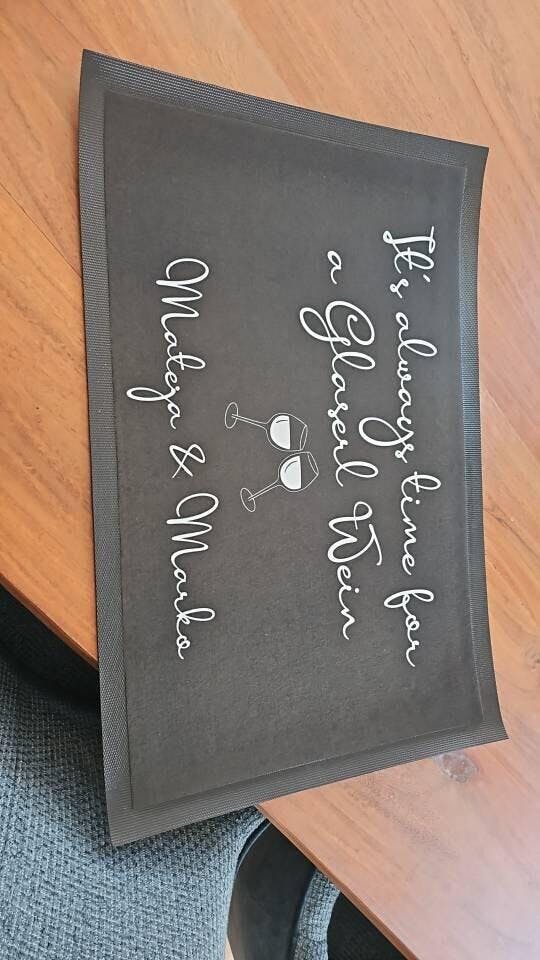 It's always time for
a Glaserl Wein
Mateja & Marko